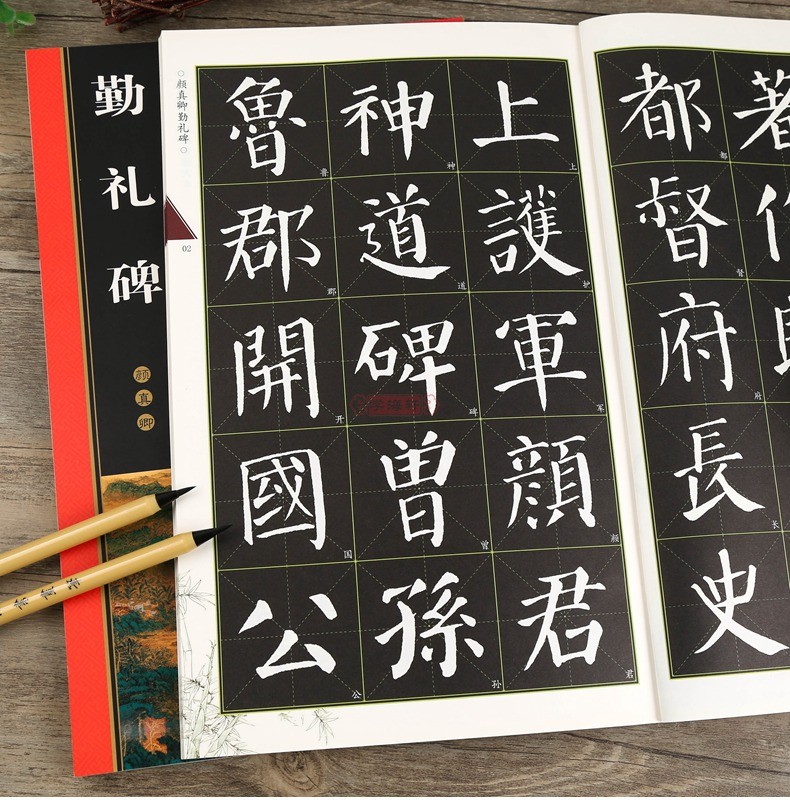 勤礼碑
颜真卿
○颜真卿勤礼碑○
02
著
都督府長史
都 督 府 长
上護軍顏君
上 护 军 颜 君
神道碑曾孫
神 道 碑 曾 孙
魯郡開國公
鲁 郡 开 国 公